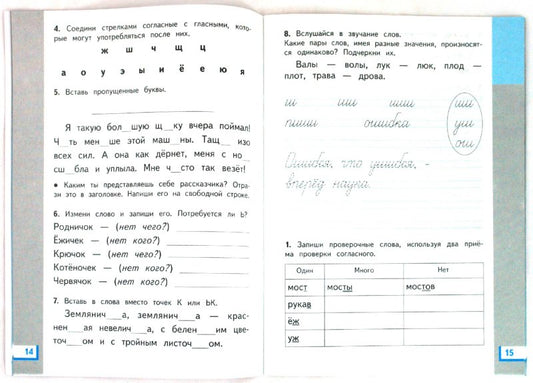 4. Соедини стрелками согласные с гласными, кото-
рые могут употребляться после них.
ж ш ч щ ц
а о у э ы и ё е ю я
5. Вставь пропущенные буквы.
Я такую бол__шую щ__ку вчера поймал!
Ч__ть мен__ше этой маш__ны. Тащ__ изо
всех сил. А она как дёрнет, меня с но__
сш__бла и уплыла. Мне ч__сто так везёт!
● Каким ты представляешь себе рассказчика? Отра-
зи это в заголовке. Напиши его на свободной строке.
6. Измени слово и запиши его. Потребуется ли Ь?
Родничок — (нет чего?)
Ёжичек — (нет кого?)
Крючок — (нет чего?)
Котёночек — (нет кого?)
Червячок — (нет кого?)
7. Вставь в слова вместо точек К или ЬК.
Землянич__а, землянич__а — крас-
нен__ая невелич__а, с белен__им цве-
точ__ом и с тройным листоч__ом.
14
8. Вслушайся в звучание слов.
Какие пары слов, имея разные значения, произносят-
ся одинаково? Подчеркни их.
Валы — волы, лук — люк, плод —
плот, трава — дрова.
ш ши иши ши
пиши ошибка уш
ош
Ошибся, что ушибся, -
вперёд наука.
1. Запиши проверочные слова, используя два приё-
ма проверки согласного.
Один Много Нет
мост мосты мостов
рукав
ёж
уж
15